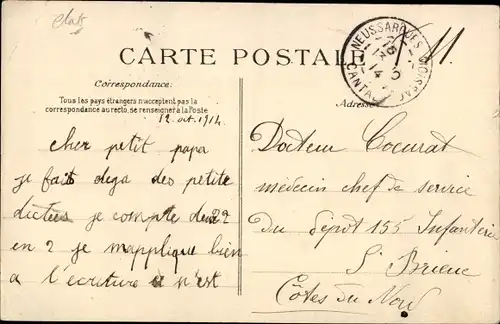 CARTE POSTALE
F. M.
NEUSSARGUES-MOISSAC
CANTAL
Correspondance:
Tous les pays étrangers n'acceptent pas la
correspondance au recto, se renseigner à la Poste
Adresse
12 oct. 1914
cher petit papa
je fais deja des petite
dictées je compte de 2
en 2 je mapplique bien
a l'écriture n'est
Docteur Coeurat
médecin chef de service
du dépôt 155 Infanterie
St Brieuc
Côtes du Nord